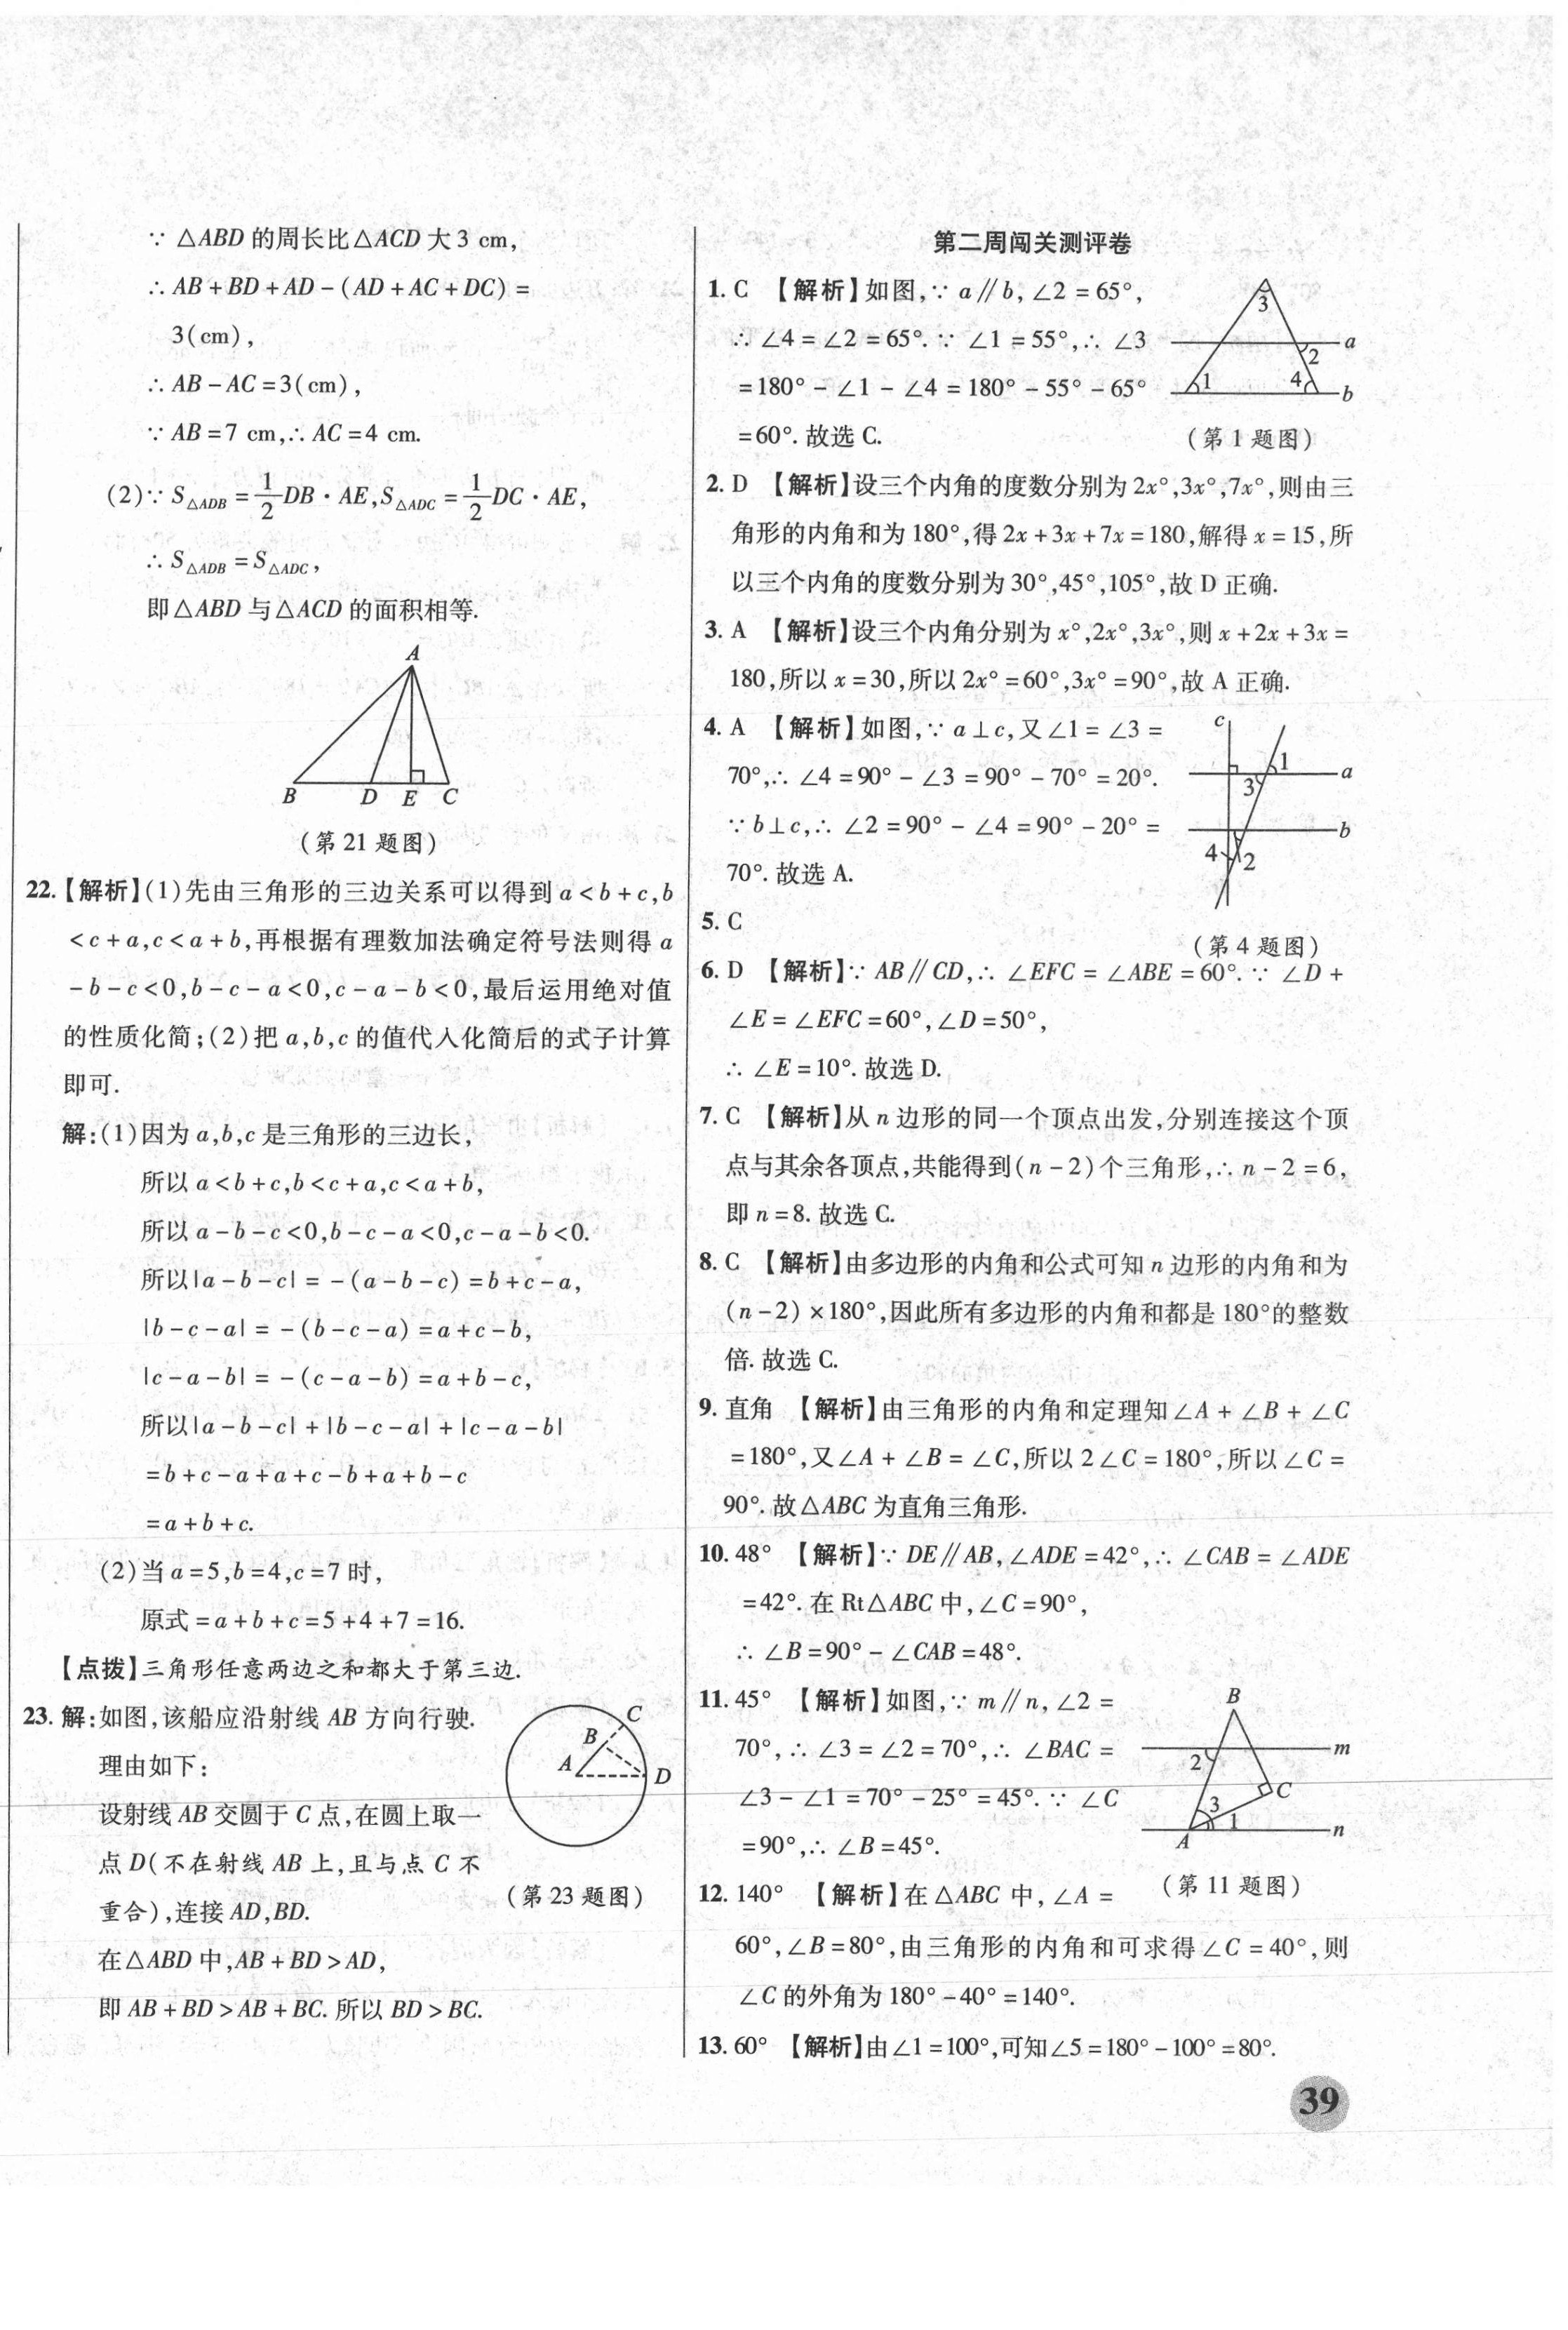 ∵ △ABD 的周长比△ACD 大 3 cm,
∴ AB+BD+AD-(AD+AC+DC)=
3(cm),
∴ AB-AC=3(cm),
∵ AB=7 cm,∴ AC=4 cm.
(2)∵ S△ADB=1/2DB·AE,S△ADC=1/2DC·AE,
∴ S△ADB=S△ADC,
即△ABD 与△ACD 的面积相等.
A
B D E C
(第 21 题图)
22.【解析】(1)先由三角形的三边关系可以得到 a<b+c,b
<c+a,c<a+b,再根据有理数加法确定符号法则得 a
-b-c<0,b-c-a<0,c-a-b<0,最后运用绝对值
的性质化简;(2)把 a,b,c 的值代入化简后的式子计算
即可.
解:(1)因为 a,b,c 是三角形的三边长,
所以 a<b+c,b<c+a,c<a+b,
所以 a-b-c<0,b-c-a<0,c-a-b<0.
所以|a-b-c|=-(a-b-c)=b+c-a,
|b-c-a|=-(b-c-a)=a+c-b,
|c-a-b|=-(c-a-b)=a+b-c,
所以|a-b-c|+|b-c-a|+|c-a-b|
=b+c-a+a+c-b+a+b-c
=a+b+c.
(2)当 a=5,b=4,c=7 时,
原式=a+b+c=5+4+7=16.
【点拨】三角形任意两边之和都大于第三边.
23. 解:如图,该船应沿射线 AB 方向行驶.
理由如下:
设射线 AB 交圆于 C 点,在圆上取一
点 D(不在射线 AB 上,且与点 C 不
重合),连接 AD,BD.
在△ABD 中,AB+BD>AD,
即 AB+BD>AB+BC. 所以 BD>BC.
C
B
A
D
(第 23 题图)
第二周闯关测评卷
1. C 【解析】如图,∵ a∥b,∠2=65°,
∴ ∠4=∠2=65°.∵ ∠1=55°,∴ ∠3
=180°-∠1-∠4=180°-55°-65°
=60°. 故选 C.
3
a
2
1 4 b
(第 1 题图)
2. D 【解析】设三个内角的度数分别为 2x°,3x°,7x°,则由三
角形的内角和为 180°,得 2x+3x+7x=180,解得 x=15,所
以三个内角的度数分别为 30°,45°,105°,故 D 正确.
3. A 【解析】设三个内角分别为 x°,2x°,3x°,则 x+2x+3x=
180,所以 x=30,所以 2x°=60°,3x°=90°,故 A 正确.
4. A 【解析】如图,∵ a⊥c,又∠1=∠3=
70°,∴ ∠4=90°-∠3=90°-70°=20°.
∵ b⊥c,∴ ∠2=90°-∠4=90°-20°=
70°. 故选 A.
c
1
a
3
b
4 2
(第 4 题图)
5. C
6. D 【解析】∵ AB∥CD,∴ ∠EFC=∠ABE=60°.∵ ∠D+
∠E=∠EFC=60°,∠D=50°,
∴ ∠E=10°. 故选 D.
7. C 【解析】从 n 边形的同一个顶点出发,分别连接这个顶
点与其余各顶点,共能得到(n-2)个三角形,∴ n-2=6,
即 n=8. 故选 C.
8. C 【解析】由多边形的内角和公式可知 n 边形的内角和为
(n-2)×180°,因此所有多边形的内角和都是 180°的整数
倍. 故选 C.
9. 直角 【解析】由三角形的内角和定理知∠A+∠B+∠C
=180°,又∠A+∠B=∠C,所以 2∠C=180°,所以∠C=
90°. 故△ABC 为直角三角形.
10. 48° 【解析】∵ DE∥AB,∠ADE=42°,∴ ∠CAB=∠ADE
=42°. 在 Rt△ABC 中,∠C=90°,
∴ ∠B=90°-∠CAB=48°.
11. 45° 【解析】如图,∵ m∥n,∠2=
70°,∴ ∠3=∠2=70°,∴ ∠BAC=
∠3-∠1=70°-25°=45°.∵ ∠C
=90°,∴ ∠B=45°.
B
m
2
C
3
1
A
n
(第 11 题图)
12. 140° 【解析】在△ABC 中,∠A=
60°,∠B=80°,由三角形的内角和可求得∠C=40°,则
∠C 的外角为 180°-40°=140°.
13. 60° 【解析】由∠1=100°,可知∠5=180°-100°=80°.
39